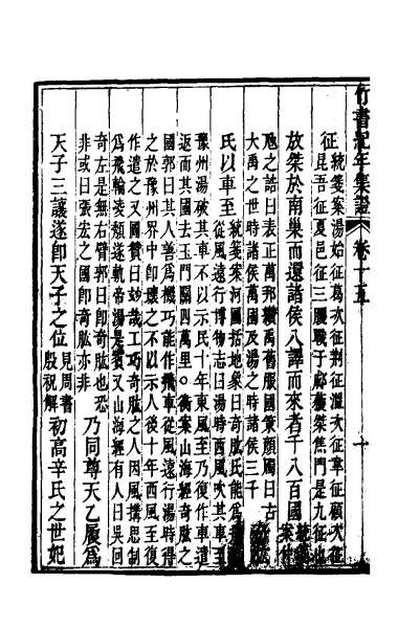 竹書紀年集證 卷十五 十
征
統箋案湯始征葛次征荊征溫次征韋征顧次征
昆吾征夏邑征三朡戰于郕獲桀焦門是九征也
放桀於南巢而還諸侯八譯而來者千八百國
統箋
案仲
虺之誥曰表正萬邦纘禹舊服國策顏斶曰古
大禹之世時諸侯萬國及湯之時諸侯三千
氏以車至
統箋案河圖括地象曰奇肱氏能為
從風遠行博物志曰湯時西風吹其車至
豫州湯破其車不以示民十年東風至乃復作車遣
返而其國去玉門關四萬里○衡案山海經奇肱之
國郭曰其人善為機巧能作飛車從風遠行湯時得
之於豫州界中即壞之不以示人後十年西風至復
作遣之又圖贊曰妙哉工巧奇肱之人因風搆思制
為飛輪凌頹遂軌帝湯是賓又山海經有人曰吳回
奇左是無右臂郭曰即奇肱也恐
非或曰張宏之國即奇肱亦非
乃同尊天乙履為
天子三讓遂即天子之位
見周書
殷祝解
初高辛氏之世妃